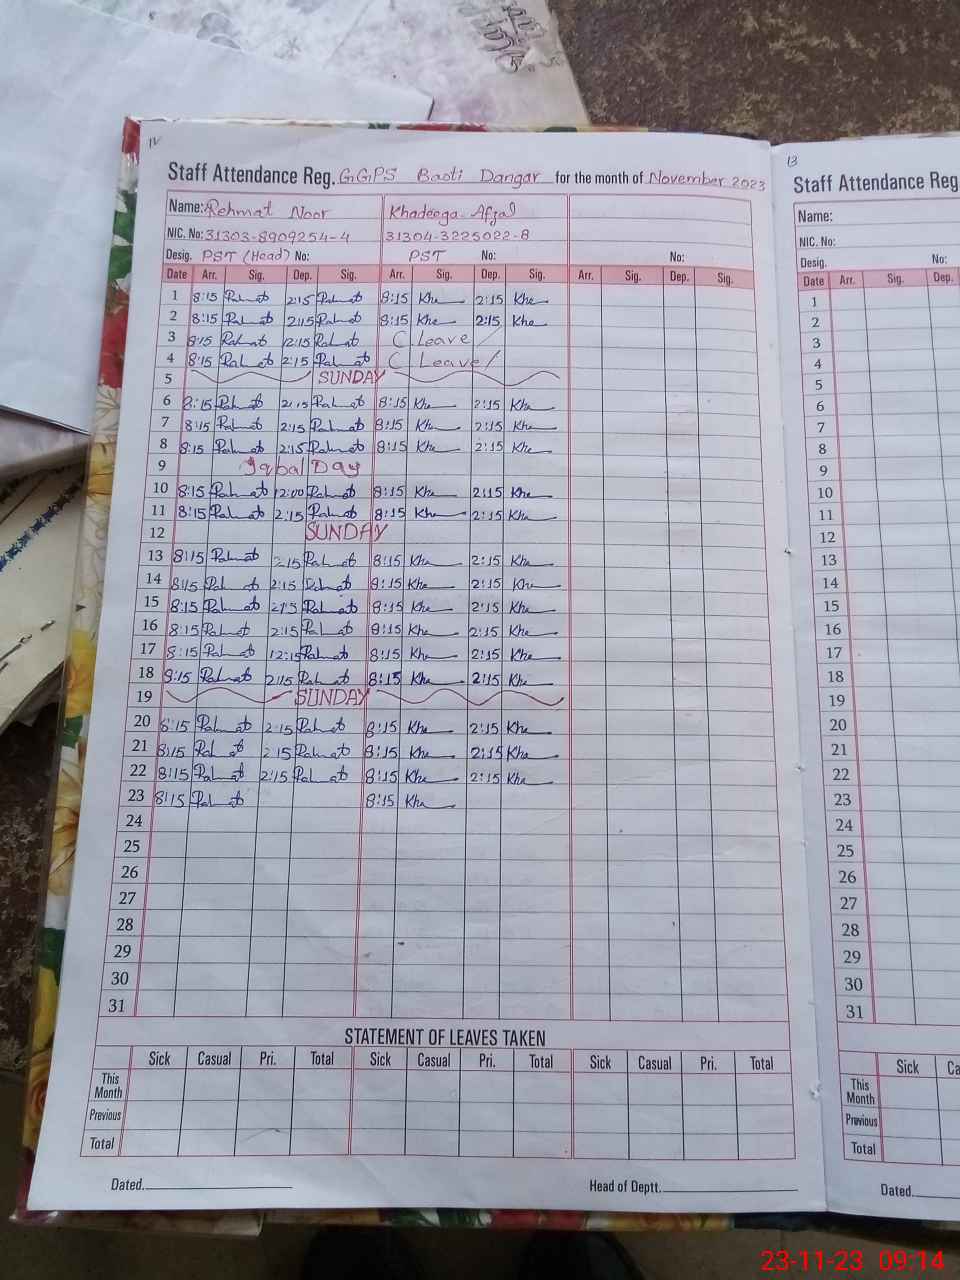 IV
Staff Attendance Reg. GGPS Basti Dangar for the month of November 2023
Name: Rehmat Noor Khadeega Afzal
NIC. No: 31303-8909254-4 31304-3225022-8
Desig. PST (Head) No: PST No: No:
Date Arr. Sig. Dep. Sig. Arr. Sig. Dep. Sig. Arr. Sig. Dep. Sig.
1 8:15 Rahmat 2:15 Rahmat 8:15 Kha 2:15 Kha
2 8:15 Rahmat 2:15 Rahmat 8:15 Kha 2:15 Kha
3 8:15 Rahmat 12:15 Rahmat C Leave /
4 8:15 Rahmat 2:15 Rahmat C Leave /
5 SUNDAY
6 8:15 Rahmat 2:15 Rahmat 8:15 Kha 2:15 Kha
7 8:15 Rahmat 2:15 Rahmat 8:15 Kha 2:15 Kha
8 8:15 Rahmat 2:15 Rahmat 8:15 Kha 2:15 Kha
9 Iqbal Day
10 8:15 Rahmat 12:00 Rahmat 8:15 Kha 2:15 Kha
11 8:15 Rahmat 2:15 Rahmat 8:15 Kha 2:15 Kha
12 SUNDAY
13 8:15 Rahmat 2:15 Rahmat 8:15 Kha 2:15 Kha
14 8:15 Rahmat 2:15 Rahmat 8:15 Kha 2:15 Kha
15 8:15 Rahmat 2:15 Rahmat 8:15 Kha 2:15 Kha
16 8:15 Rahmat 2:15 Rahmat 8:15 Kha 2:15 Kha
17 8:15 Rahmat 12:15 Rahmat 8:15 Kha 2:15 Kha
18 8:15 Rahmat 2:15 Rahmat 8:15 Kha 2:15 Kha
19 SUNDAY
20 8:15 Rahmat 2:15 Rahmat 8:15 Kha 2:15 Kha
21 8:15 Rahmat 2:15 Rahmat 8:15 Kha 2:15 Kha
22 8:15 Rahmat 2:15 Rahmat 8:15 Kha 2:15 Kha
23 8:15 Rahmat 8:15 Kha
24
25
26
27
28
29
30
31
STATEMENT OF LEAVES TAKEN
Sick Casual Pri. Total Sick Casual Pri. Total Sick Casual Pri. Total
This Month
Previous
Total
Dated. Head of Deptt.
13
Staff Attendance Reg
Name:
NIC. No:
Desig. No:
Date Arr. Sig. Dep.
1
2
3
4
5
6
7
8
9
10
11
12
13
14
15
16
17
18
19
20
21
22
23
24
25
26
27
28
29
30
31
Sick Ca
This Month
Previous
Total
Dated.
23-11-23 09:14